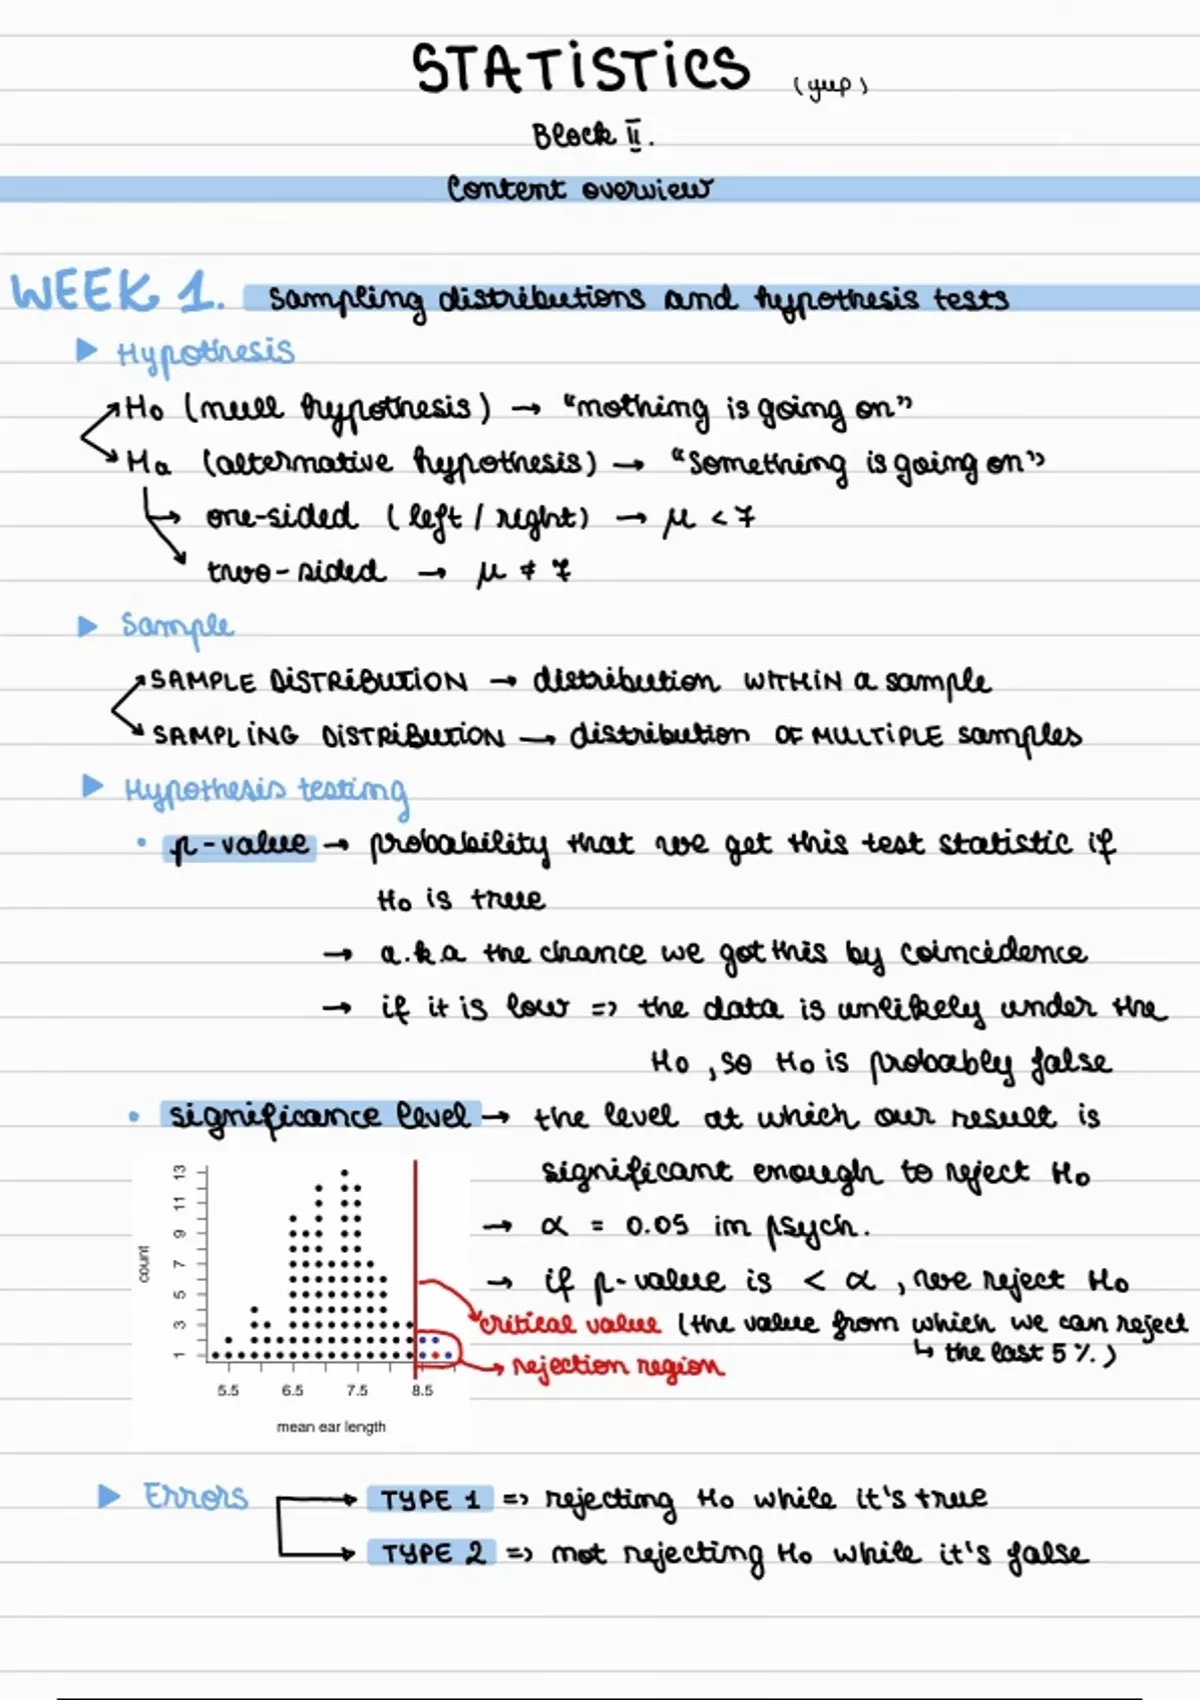 STATISTICS (yup)
Block II.
Content overview
WEEK 1. Sampling distributions and hypothesis tests
Hypothesis
H₀ (null hypothesis) → "nothing is going on"
Ha (alternative hypothesis) → "Something is going on"
one-sided (left / right) → μ < 7
two-sided → μ ≠ 7
Sample
SAMPLE DISTRIBUTION → distribution WITHIN a sample
SAMPLING DISTRIBUTION → distribution OF MULTIPLE samples
Hypothesis testing
• p-value → probability that we get this test statistic if
H₀ is true
→ a.k.a the chance we got this by coincidence
→ if it is low => the data is unlikely under the
H₀, so H₀ is probably false
• significance level → the level at which our result is
significant enough to reject H₀
→ α = 0.05 in psych.
→ if p-value is < α, we reject H₀
critical value (the value from which we can reject
↳ the last 5 %.)
rejection region
count
13
11
9
7
5
3
1
5.5 6.5 7.5 8.5
mean ear length
Errors
TYPE 1 => rejecting H₀ while it's true
TYPE 2 => not rejecting H₀ while it's false